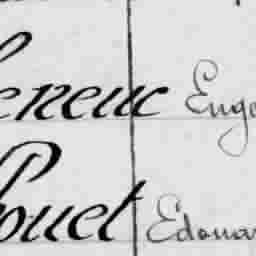 eneuc Euge
Pouet Edouar